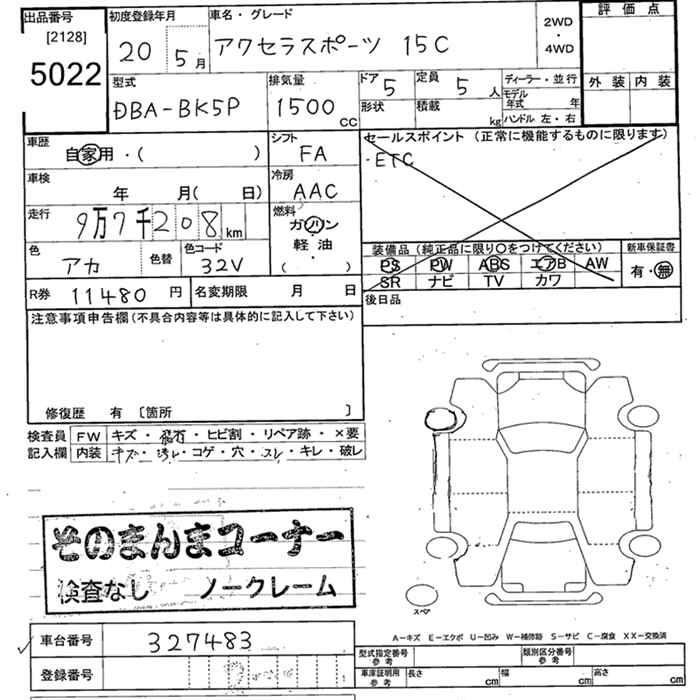 出品番号 初度登録年月 車名・グレード 2WD・4WD 評価点
[2128]
5022 20 5月 アクセラスポーツ 15C
型式 排気量 ドア 5 定員 5人 ディーラー・並行 外装 内装
DBA-BK5P 1500cc 形状 積載 kg モデル年式 年
ハンドル 左・右
車歴 シフト セールスポイント (正常に機能するものに限ります)
自家用・( ) FA ・ETC
車検 冷房
年 月( 日) AAC
走行 燃料
9万7千208km ガソリン
軽油
( )
装備品 (純正品に限り○をつけてください) 新車保証書
色 色替 色コード PS PW ABS エアB AW 有・無
アカ 32V SR ナビ TV カワ
R券 11480円 名変期限 月 日 後日品
注意事項申告欄(不具合内容等は具体的に記入して下さい)
修復歴 有 [箇所 ]
検査員 FW キズ・飛石・ヒビ割・リペア跡・×要
記入欄 内装 キズ・汚レ・コゲ・穴・スレ・キレ・破レ
そのまんまコーナー
検査なし ノークレーム
スペア
A－キズ E－エクボ U－凹み W－補修跡 S－サビ C－腐食 XX－交換済
車台番号 327483
登録番号
型式指定番号 参考 類別区分番号 参考
車庫証明用 参考 長さ cm 幅 cm 高さ cm